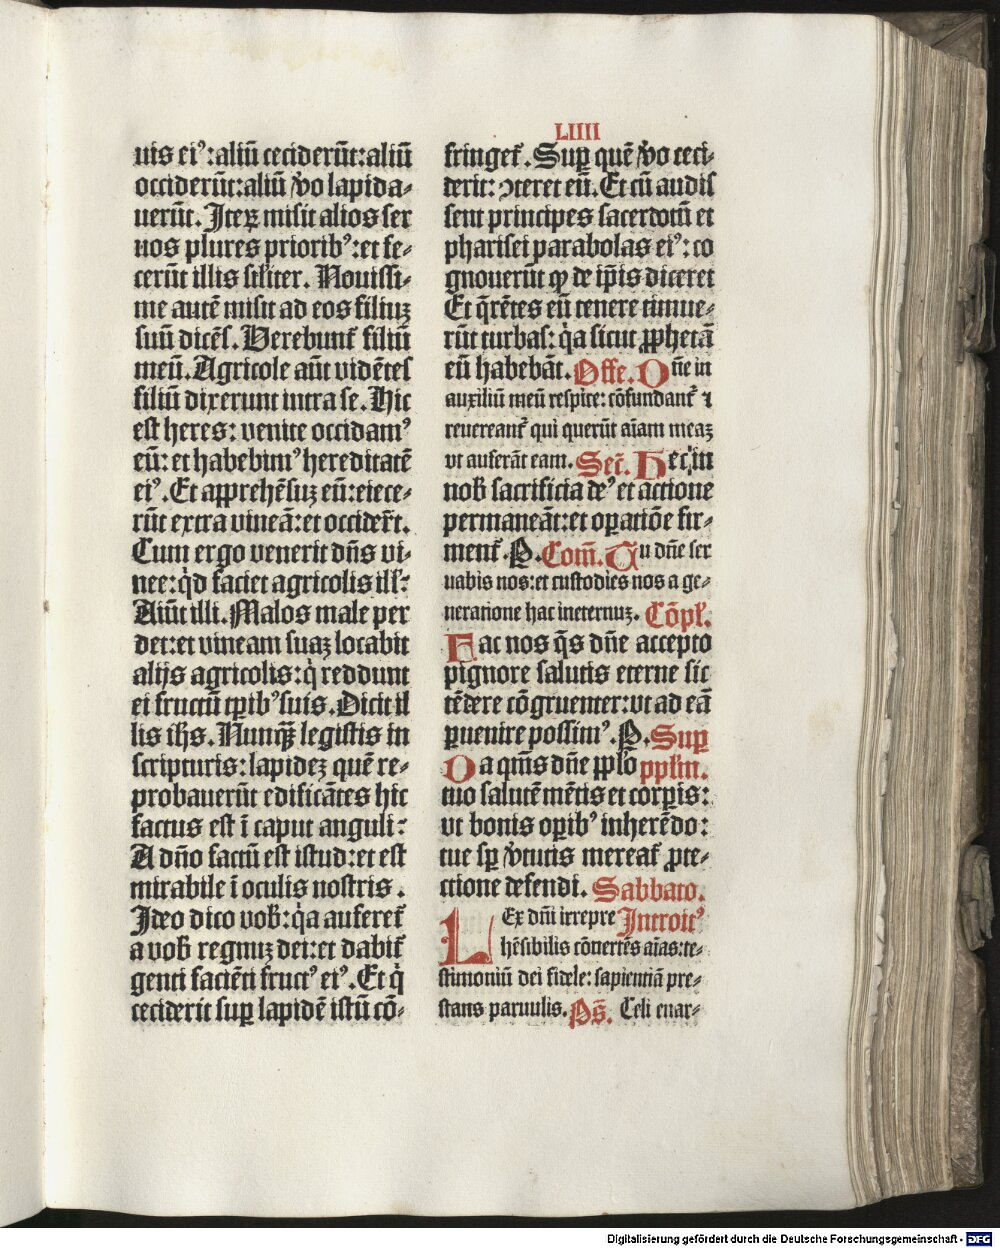 LIIII
uis eiꝰ: aliū ceciderūt: aliū
occiderūt: aliū v̓o lapida⸗
uerūt. Iteꝝ misit alios ser
uos plures prioribꝰ: et fe⸗
cerūt illis sil̓iter. Nouissi⸗
me autē misit ad eos filiuꝫ
suū dicēs. Verebunt᷑ filiū
meū. Agricole aūt vidētes
filiū dixerunt intra se. Hic
est heres: venite occidamꝰ
eū: et habebimꝰ hereditatē
eiꝰ. Et apprehēsuꝫ eū: eiece⸗
rūt extra vineā: et occider̄t.
Cum ergo venerit dn̄s vi⸗
nee: qͥd faciet agricolis ill̓:
Aiūt illi. Malos male per
det: et vineam suaꝫ locabit
alijs agricolis: qͥ reddunt
ei fructū tꝑibꝰ suis. Dicit il
lis ih̄s. Nunqꝫ̄ legistis in
scripturis: lapideꝫ quē re⸗
probauerūt edificātes hic
factus est ī caput anguli:
A dn̄o factū est istud: et est
mirabile ī oculis nostris.
Ideo dico vob̄: qͥa auferet᷑
a vob̄ regnuꝫ dei: et dabit᷑
genti faciēti fructꝰ eiꝰ. Et qͥ
ceciderit suꝑ lapidē istū cō⸗
fringet᷑. Suꝑ quē v̓o ceci⸗
derit: ꝯteret eū. Et cū audis
sent principes sacerdotū et
pharisei parabolas eiꝰ: co
gnouerūt ꝙ de ip̄is diceret
Et q̄rētes eū tenere timue⸗
rūt turbas: qͥa sicut ꝓphetā
eū habebāt. Offe. Dn̄e in
auxiliū meū respice: cōfundant᷑ ⁊
reuereant᷑ qui querūt aīam meaꝫ
vt auferāt eam. Secr̄. Hec in
nob̄ sacrificia deꝰ et actione
permaneāt: et oꝑatiōe fir⸗
ment᷑. P. Com̄. Tu dn̄e ser
uabis nos: et custodies nos a ge⸗
neratione hac ineternuꝫ. Cōpl̓.
Fac nos qs̄ dn̄e accepto
pignore salutis eterne sic
tēdere cōgruenter: vt ad eā
ꝑuenire possimꝰ. P. Suꝑ
Da qm̄s dn̄e ppl̓o ppl̓m.
tuo salutē mētis et corꝑis:
vt bonis oꝑibꝰ inherēdo:
tue sꝑ v̓tutis mereat᷑ ꝓte⸗
ctione defendi. Sabbato.
Lex dn̄i irrepre Introitꝰ
hēsibilis cōuertēs aīas: te⸗
stimoniū dei fidele: sapientiā pre⸗
stans paruulis. Ps̄. Celi enar⸗
Digitalisierung gefördert durch die Deutsche Forschungsgemeinschaft - DFG